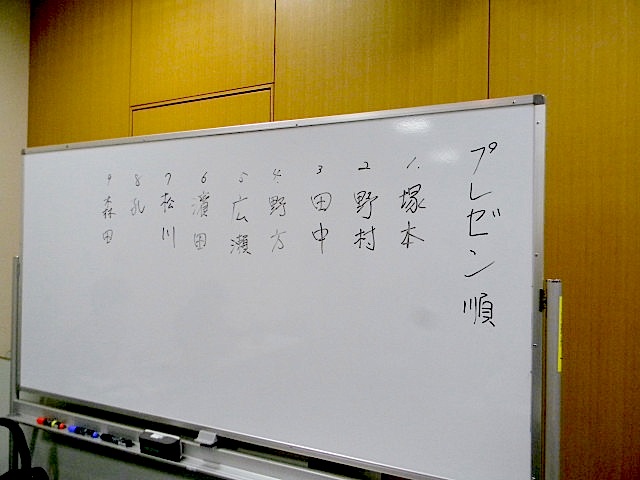 プレゼン順
1. 塚本
2 野村
3 田中
4. 野方
5 広瀬
6 濱田
7 松川
8 孔
9 森田